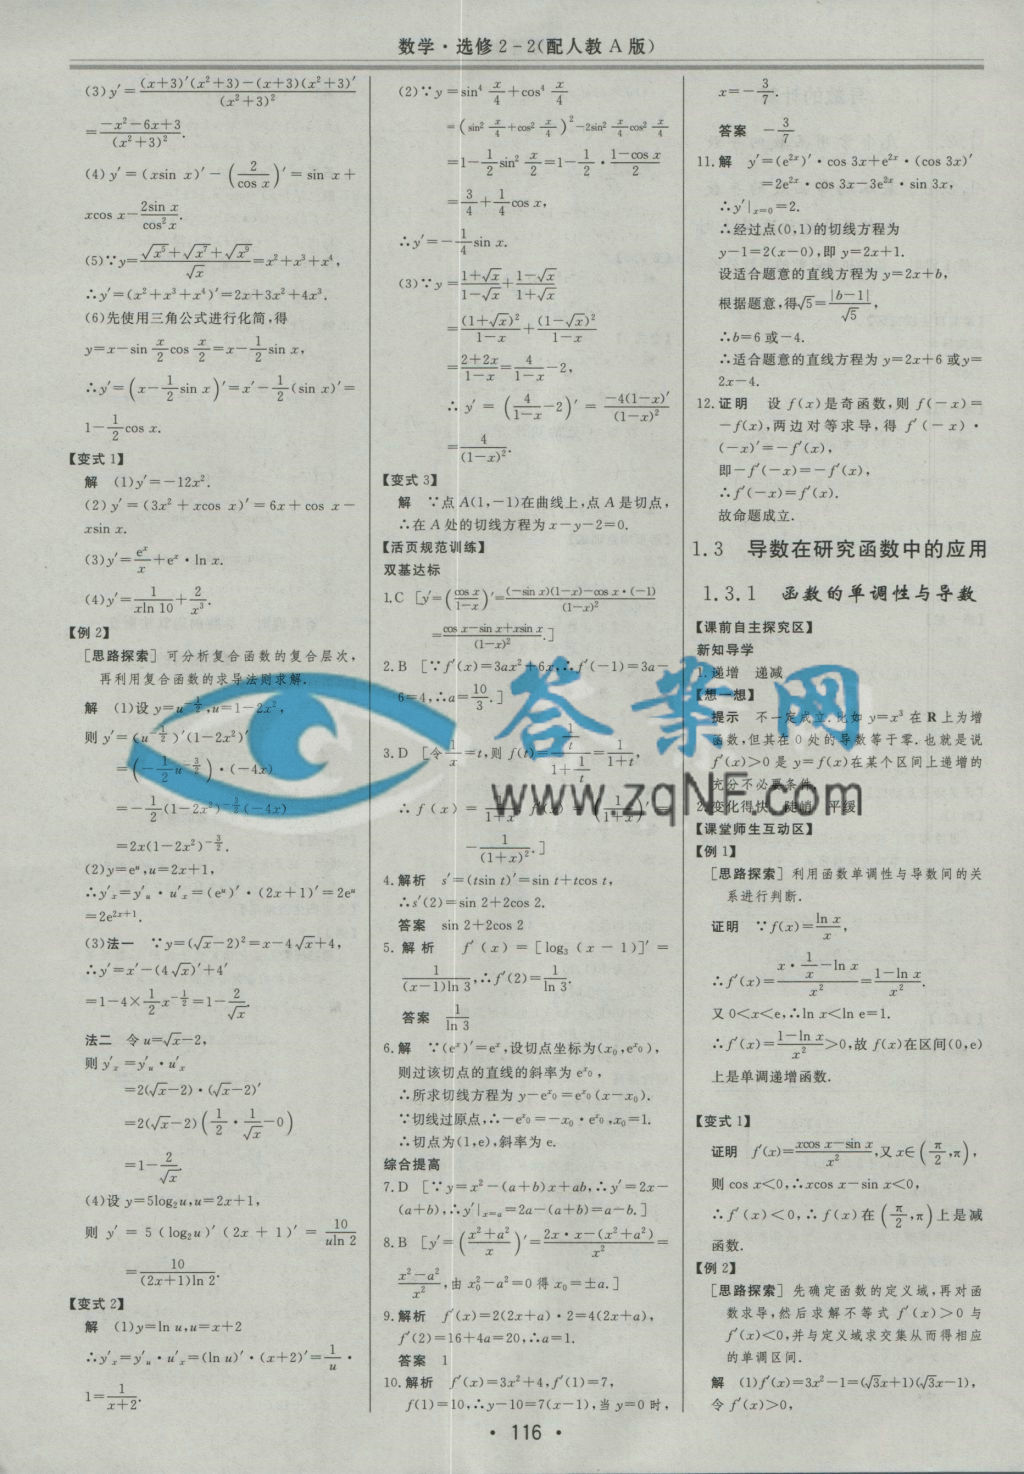 数学·选修2-2(配人教A版)
(3)y′=\frac{(x+3)′(x²+3)-(x+3)(x²+3)′}{(x²+3)²}
=\frac{-x²-6x+3}{(x²+3)²}.
(4)y′=(xsin x)′-(\frac{2}{cos x})′=sin x+
xcos x-\frac{2sin x}{cos²x}.
(5)∵y=\frac{√x⁵+√x⁷+√x⁹}{√x}=x²+x³+x⁴,
∴y′=(x²+x³+x⁴)′=2x+3x²+4x³.
(6)先使用三角公式进行化简,得
y=x-sin \frac{x}{2}cos \frac{x}{2}=x-\frac{1}{2}sin x,
∴y′=(x-\frac{1}{2}sin x)′=x′-\frac{1}{2}(sin x)′=
1-\frac{1}{2}cos x.
【变式1】
解 (1)y′=-12x².
(2)y′=(3x²+xcos x)′=6x+cos x-
xsin x.
(3)y′=\frac{eˣ}{x}+eˣ·ln x.
(4)y′=\frac{1}{xln 10}+\frac{2}{x³}.
【例2】
[思路探索] 可分析复合函数的复合层次,
再利用复合函数的求导法则求解.
解 (1)设y=u^{-\frac{1}{2}},u=1-2x²,
则y′=(u^{-\frac{1}{2}})′(1-2x²)′
=(-\frac{1}{2}u^{-\frac{3}{2}})·(-4x)
=-\frac{1}{2}(1-2x²)^{-\frac{3}{2}}(-4x)
=2x(1-2x²)^{-\frac{3}{2}}.
(2)y=eᵘ,u=2x+1,
∴y′ₓ=y′ᵤ·u′ₓ=(eᵘ)′·(2x+1)′=2eᵘ
=2e^{2x+1}.
(3)法一 ∵y=(√x-2)²=x-4√x+4,
∴y′=x′-(4√x)′+4′
=1-4×\frac{1}{2}x^{-\frac{1}{2}}=1-\frac{2}{√x}.
法二 令u=√x-2,
则y′ₓ=y′ᵤ·u′ₓ
=2(√x-2)·(√x-2)′
=2(√x-2)(\frac{1}{2}·\frac{1}{√x}-0)
=1-\frac{2}{√x}.
(4)设y=5log₂u,u=2x+1,
则y′=5(log₂u)′(2x+1)′=\frac{10}{uln 2}
=\frac{10}{(2x+1)ln 2}.
【变式2】
解 (1)y=ln u,u=x+2
∴y′ₓ=y′ᵤ·u′ₓ=(ln u)′·(x+2)′=\frac{1}{u}·
1=\frac{1}{x+2}.
(2)∵y=sin⁴\frac{x}{4}+cos⁴\frac{x}{4}
=(sin²\frac{x}{4}+cos²\frac{x}{4})²-2sin²\frac{x}{4}cos²\frac{x}{4}
=1-\frac{1}{2}sin²\frac{x}{2}=1-\frac{1}{2}·\frac{1-cos x}{2}
=\frac{3}{4}+\frac{1}{4}cos x,
∴y′=-\frac{1}{4}sin x.
(3)∵y=\frac{1+√x}{1-√x}+\frac{1-√x}{1+√x}
=\frac{(1+√x)²}{1-x}+\frac{(1-√x)²}{1-x}
=\frac{2+2x}{1-x}=\frac{4}{1-x}-2,
∴y′=(\frac{4}{1-x}-2)′=\frac{-4(1-x)′}{(1-x)²}
=\frac{4}{(1-x)²}.
【变式3】
解 ∵点A(1,-1)在曲线上,点A是切点,
∴在A处的切线方程为x-y-2=0.
【活页规范训练】
双基达标
1.C [y′=(\frac{cos x}{1-x})′=\frac{(-sin x)(1-x)-cos x·(-1)}{(1-x)²}
=\frac{cos x-sin x+xsin x}{(1-x)²}.]
2.B [∵f′(x)=3ax²+6x,∴f′(-1)=3a-
6=4,∴a=\frac{10}{3}.]
3.D [令\frac{1}{x}=t,则f(t)=\frac{\frac{1}{t}}{1+\frac{1}{t}}=\frac{1}{1+t},
∴f(x)=\frac{1}{1+x},f′(x)=(\frac{1}{1+x})′=
-\frac{1}{(1+x)²}.]
4.解析 s′=(tsin t)′=sin t+tcos t,
∴s′(2)=sin 2+2cos 2.
答案 sin 2+2cos 2
5.解析 f′(x)=[log₃(x-1)]′=
\frac{1}{(x-1)ln 3},∴f′(2)=\frac{1}{ln 3}.
答案 \frac{1}{ln 3}
6.解 ∵(eˣ)′=eˣ,设切点坐标为(x₀,e^{x₀}),
则过该切点的直线的斜率为e^{x₀},
∴所求切线方程为y-e^{x₀}=e^{x₀}(x-x₀).
∵切线过原点,∴-e^{x₀}=-x₀·e^{x₀},x₀=1.
∴切点为(1,e),斜率为e.
综合提高
7.D [∵y=x²-(a+b)x+ab,∴y′=2x-
(a+b),∴y′|ₓ₌ₐ=2a-(a+b)=a-b.]
8.B [y′=(\frac{x²+a²}{x})′=\frac{2x·x-(x²+a²)}{x²}=
\frac{x²-a²}{x²},由x₀²-a²=0得x₀=±a.]
9.解析 f′(x)=2(2x+a)·2=4(2x+a),
f′(2)=16+4a=20,∴a=1.
答案 1
10.解析 f′(x)=3x²+4,f′(1)=7,
f(1)=10,∴y-10=7(x-1),当y=0时,
x=-\frac{3}{7}.
答案 -\frac{3}{7}
11.解 y′=(e^{2x})′·cos 3x+e^{2x}·(cos 3x)′
=2e^{2x}·cos 3x-3e^{2x}·sin 3x,
∴y′|ₓ₌₀=2.
∴经过点(0,1)的切线方程为
y-1=2(x-0),即y=2x+1.
设适合题意的直线方程为y=2x+b,
根据题意,得√5=\frac{|b-1|}{√5},
∴b=6或-4.
∴适合题意的直线方程为y=2x+6或y=
2x-4.
12.证明 设f(x)是奇函数,则f(-x)=
-f(x),两边对等求导,得f′(-x)·
(-x)′=-f′(x),
即-f′(-x)=-f′(x),
∴f′(-x)=f′(x).
故命题成立.
1.3 导数在研究函数中的应用
1.3.1 函数的单调性与导数
【课前自主探究区】
新知导学
1.递增 递减
【想一想】
提示 不一定成立.比如y=x³在R上为增
函数,但其在0处的导数等于零.也就是说
f′(x)>0是y=f(x)在某个区间上递增的
充分不必要条件.
2.变化得快 陡峭 平缓
【课堂师生互动区】
【例1】
[思路探索] 利用函数单调性与导数间的关
系进行判断.
证明 ∵f(x)=\frac{ln x}{x},
∴f′(x)=\frac{x·\frac{1}{x}-ln x}{x²}=\frac{1-ln x}{x²}.
又0<x<e,∴ln x<ln e=1.
∴f′(x)=\frac{1-ln x}{x²}>0,故f(x)在区间(0,e)
上是单调递增函数.
【变式1】
证明 f′(x)=\frac{xcos x-sin x}{x²},又x∈(\frac{π}{2},π),
则cos x<0,∴xcos x-sin x<0,
∴f′(x)<0,∴f(x)在(\frac{π}{2},π)上是减
函数.
【例2】
[思路探索] 先确定函数的定义域,再对函
数求导,然后求解不等式f′(x)>0与
f′(x)<0,并与定义域求交集从而得相应
的单调区间.
解 (1)f′(x)=3x²-1=(√3x+1)(√3x-1),
令f′(x)>0,
·116·
答案网
www.zqNF.com